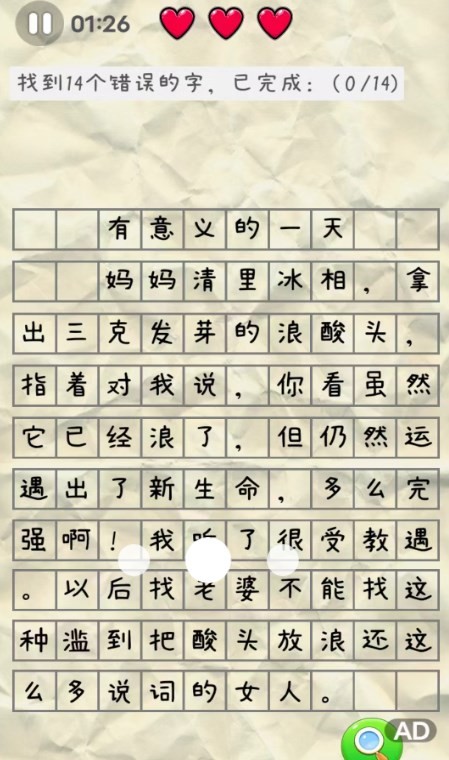 01:26
找到14个错误的字，已完成：(0/14)
有意义的一天
妈妈清里冰相，拿
出三克发芽的浪酸头，
指着对我说，你看虽然
它已经浪了，但仍然运
遇出了新生命，多么完
强啊！我听了很受教遇
。以后找老婆不能找这
种滥到把酸头放浪还这
么多说词的女人。
AD